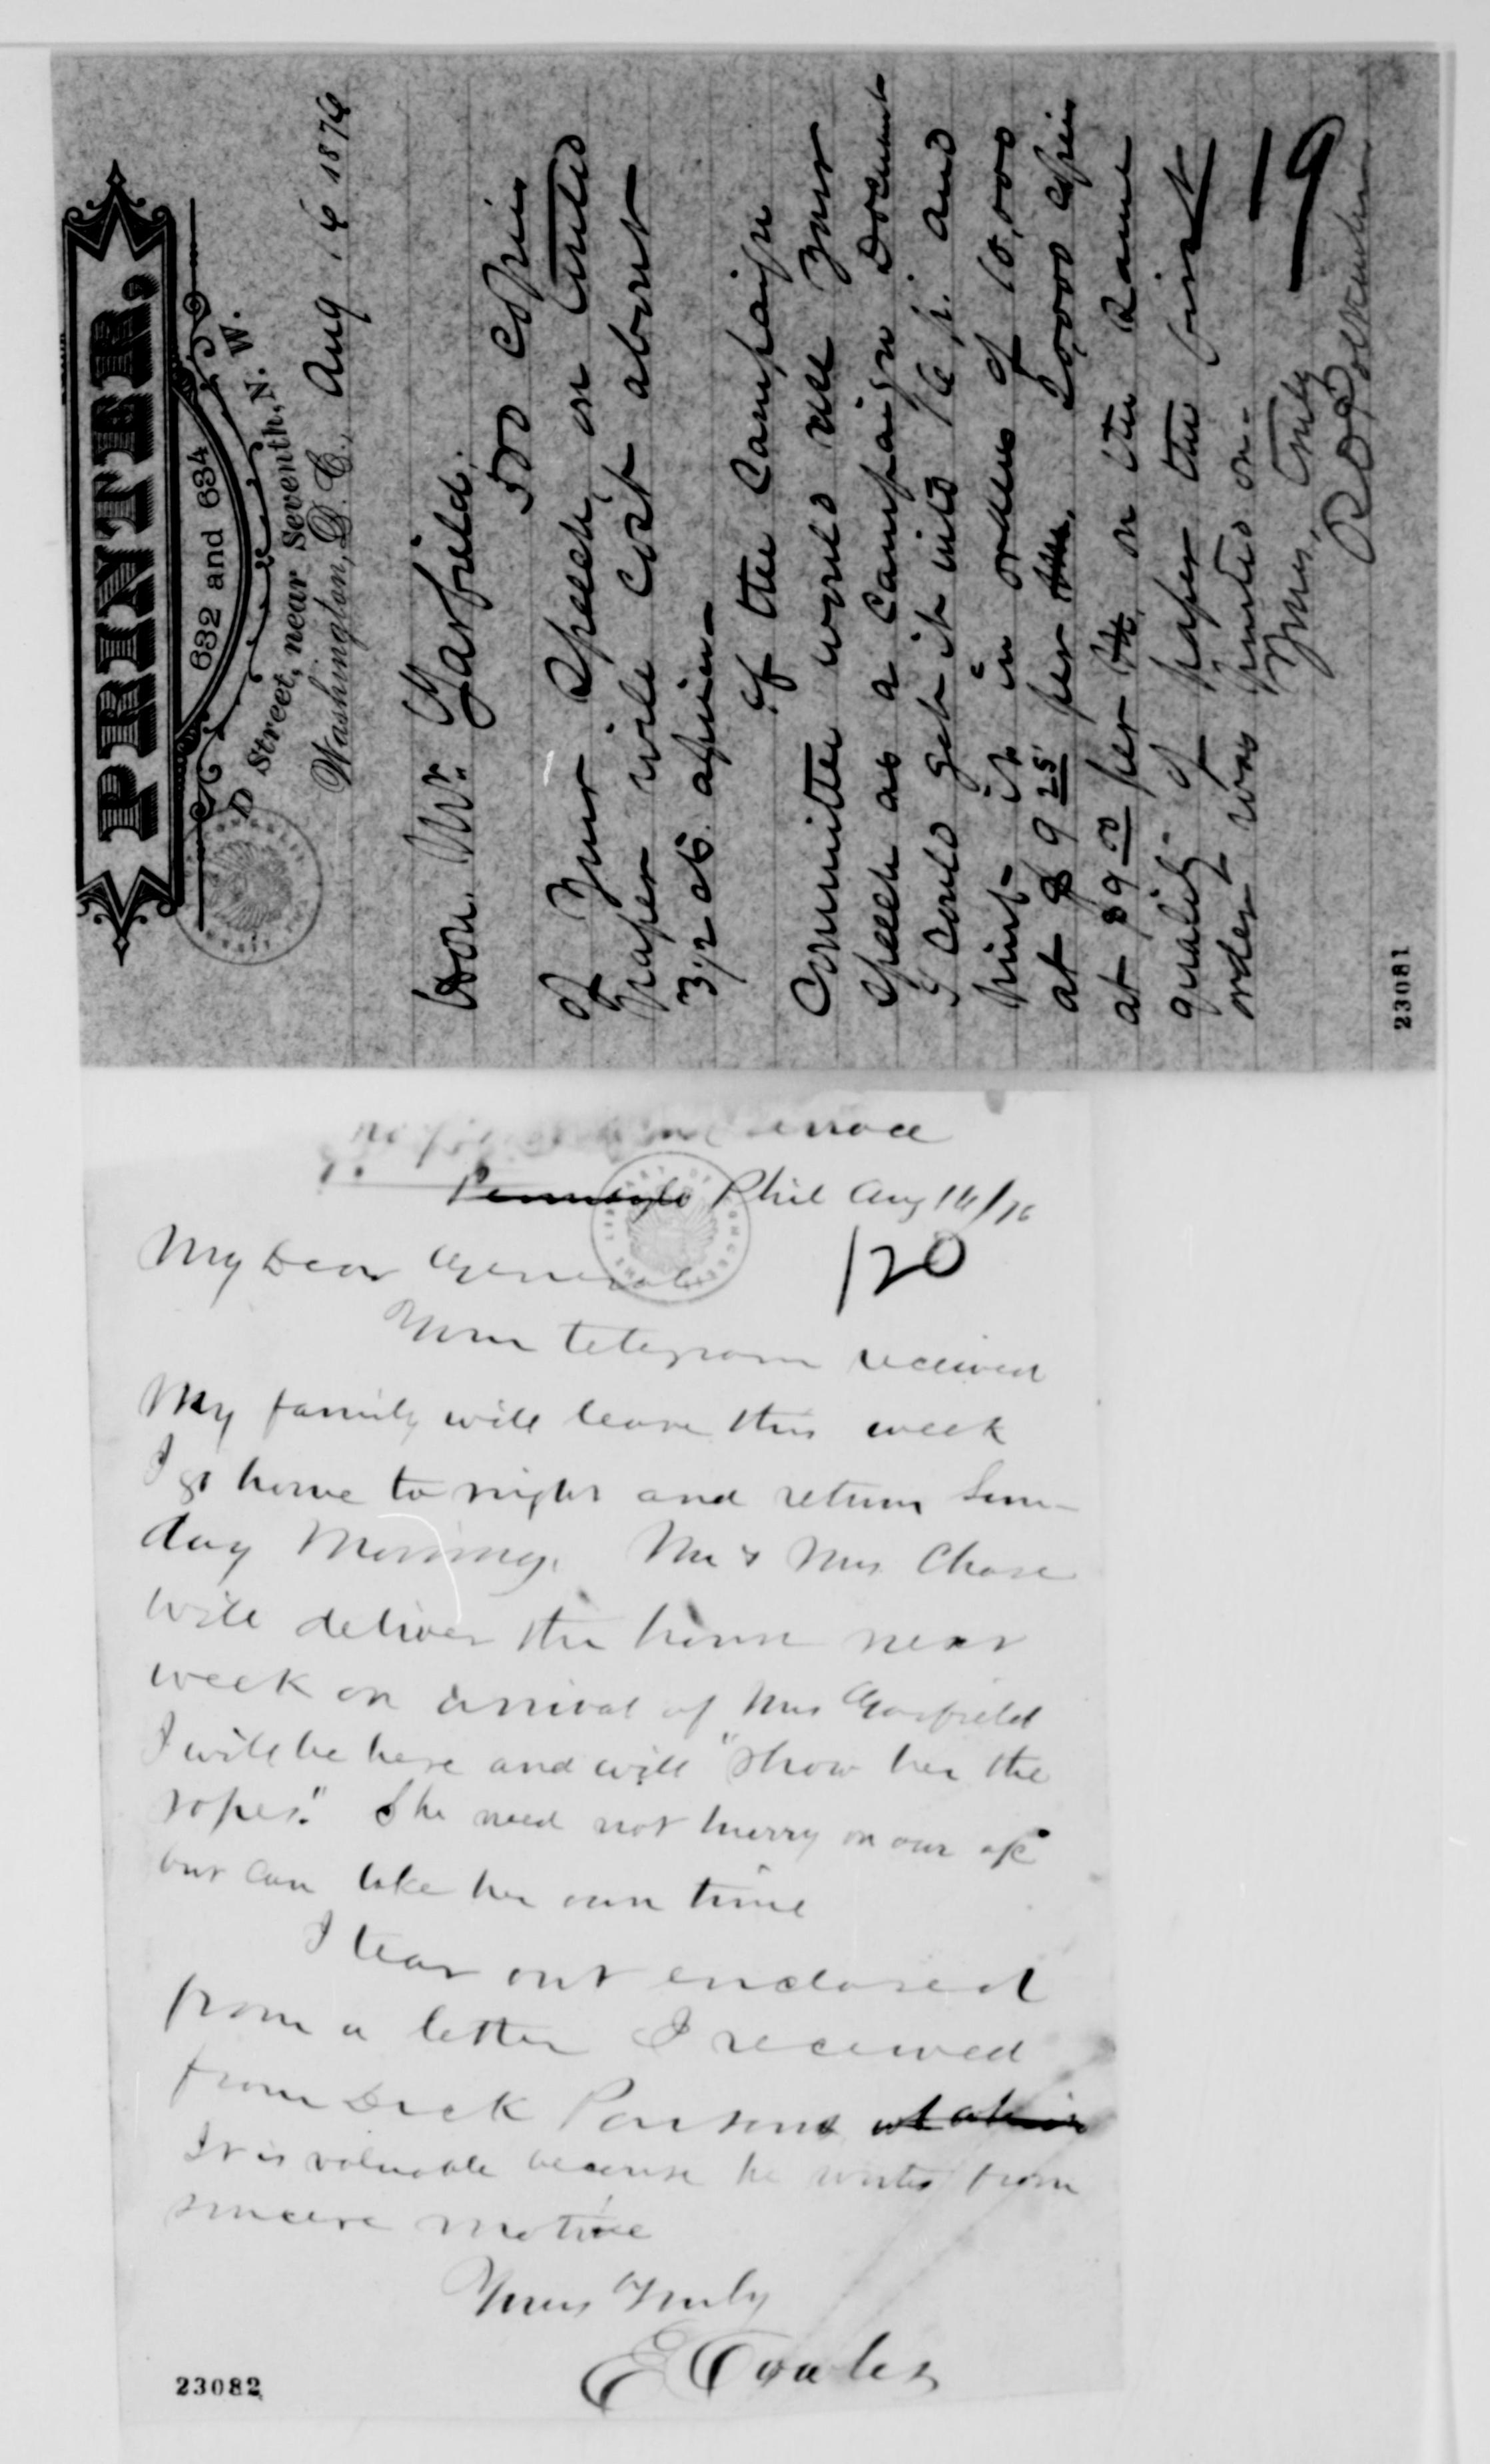 PRINTER,
632 and 634
D Street, near Seventh, N. W.
Washington, D. C., Aug 16 1876
Hon. Mr. Garfield.
500 copies
of your speech, on tinted
paper will cost about
3 1/2 cts. apiece.
If the Campaign
Committee would use your
speech as a Campaign Document
I could get it into 16 p. and
print it in orders of 10,000
at $9 25 per
at $9 00 per on the same
quality of paper the first
order was printed on.
Yours, truly
19
23081
Phil Aug 16/76
My Dear General
120
Your telegram received
My family will leave this week
I go home to night and return Sun-
day Morning. Mr & Mrs Chase
will deliver the house next
week on arrival of Mrs Garfield
I will be here and will "show her the
ropes." She need not hurry on our a/c
but can take her own time
I tear out enclosed
from a letter I received
from Dick Parsons
It is valuable because he writes from
sincere motive
Yours Truly
E Cowles
23082